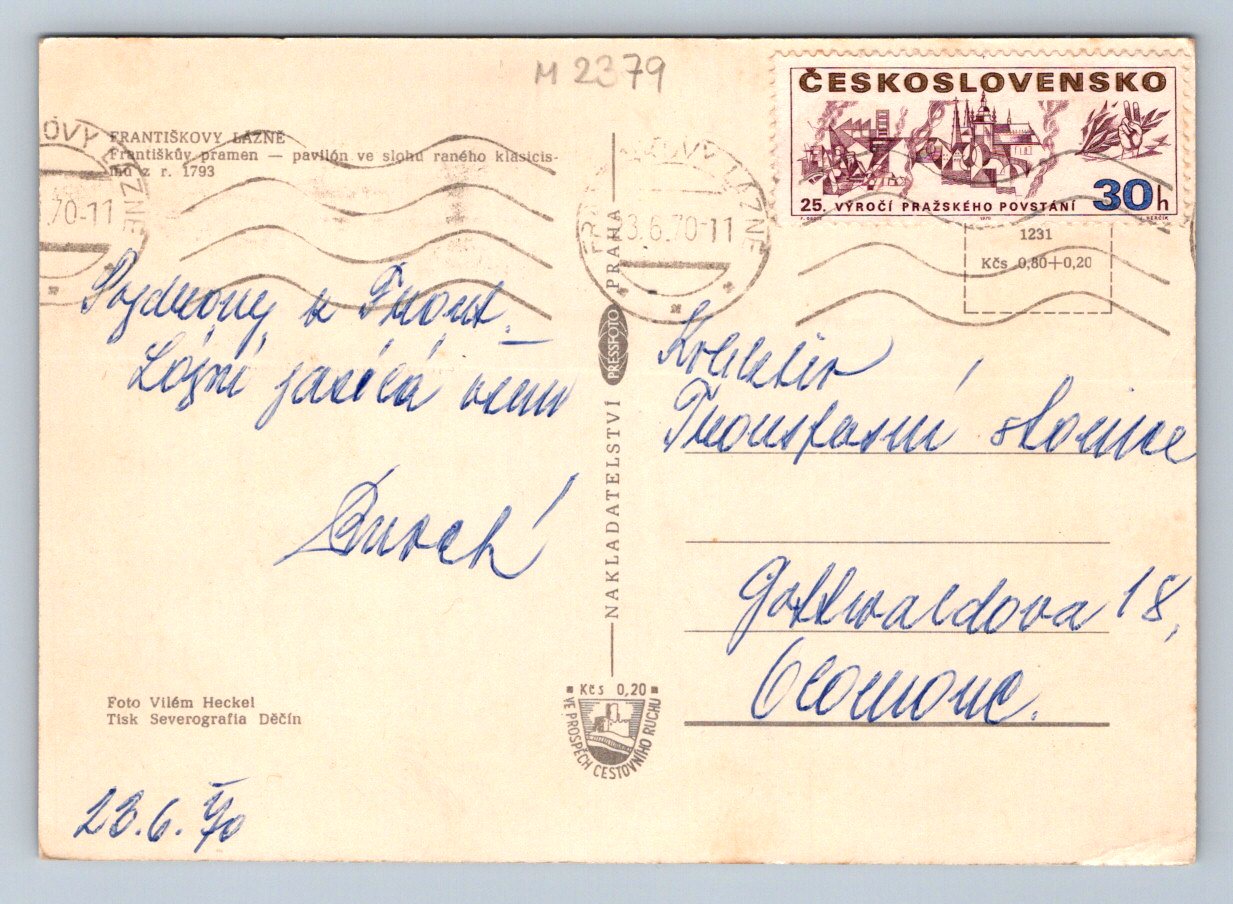 M 2379
ČESKOSLOVENSKO
25. VÝROČÍ PRAŽSKÉHO POVSTÁNÍ 30h
1970
FRANTIŠKOVY LÁZNĚ
Františkův pramen — pavilón ve slohu raného klasicis-
mu z r. 1793
FRANTIŠKOVY LÁZNĚ
3.6.70-11
.70-11
1231
Kčs 0,80+0,20
Pozdravy z Frant.
Lázní
Kolektiv
Transfusní stanice
Gottwaldova 18,
Olomouc.
NAKLADATELSTVÍ PRESSFOTO PRAHA
Foto Vilém Heckel
Tisk Severografia Děčín
Kčs 0,20
VE PROSPĚCH CESTOVNÍHO RUCHU
23.6.70